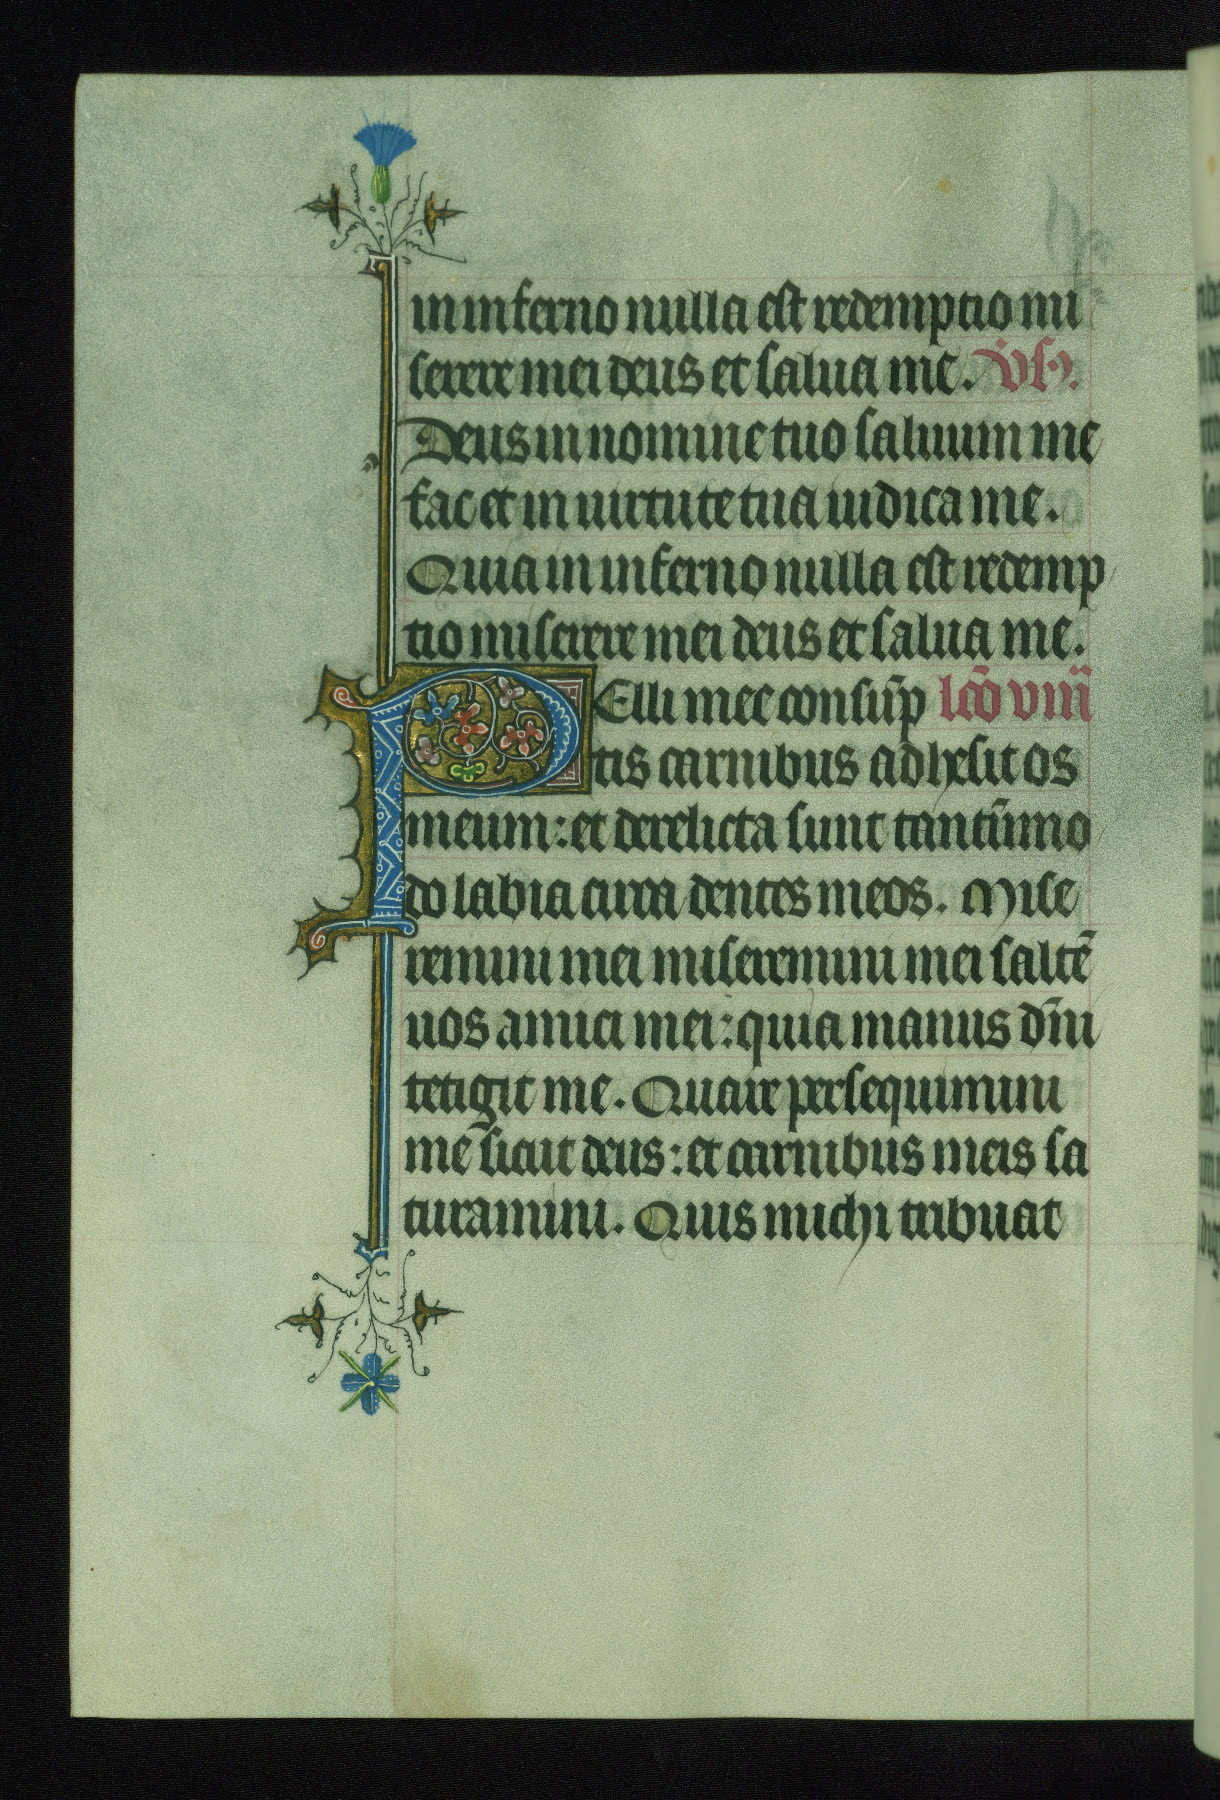 in inferno nulla est redemptio mi
serere mei deus et salua me. v̄s.
Deus in nomine tuo saluum me
fac et in uirtute tua iudica me.
Quia in inferno nulla est redemp
tio miserere mei deus et salua me.
PElli mee consūp lcō viii
tis carnibus adhesit os
meum: et derelicta sunt tantūmo
do labia circa dentes meos. Mise
remini mei miseremini mei saltē
uos amici mei: quia manus dn̄i
tetigit me. Quare persequimini
me sicut deus: et carnibus meis sa
turamini. Quis michi tribuat